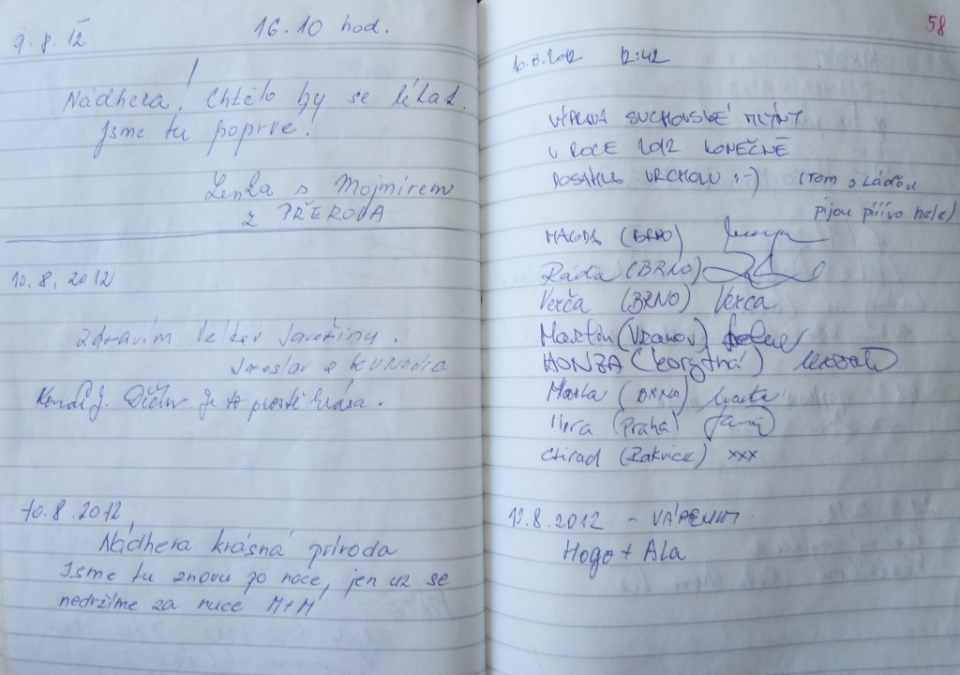 9.8.12 16.10 hod.
Nádhera! Chtělo by se létat.
jsme tu poprve.
Lenka s Mojmírem
z PŘEROVA
10.8.2012
Zdravím
Jaroslav z KUNOVIC
Je to prostě krása.
10.8.2012
Nádhera krásná príroda
Jsme tu znovu po roce, jen už se
nedržíme za ruce M+M
58
10.8.2012 12:42
VÝPRAVA SUCHOVSKÉ MLÝNY
V ROCE 2012 KONEČNĚ
DOSÁHLA VRCHOLU :-) (Tom s Láďou
pijou pííívo hele)
MAGDA (BRNO)
Ráďa (BRNO)
Verča (BRNO) Verca
Martin (Vranov)
HONZA (Korytná)
Marta (BRNO) Marta
Věra (Praha)
Ctirad (Rakvice) xxx
12.8.2012 - VÁPENKY
Hogo + Ala